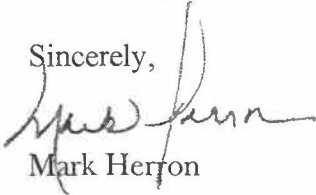 Sincerely,
Mark Herron
Mark Herron